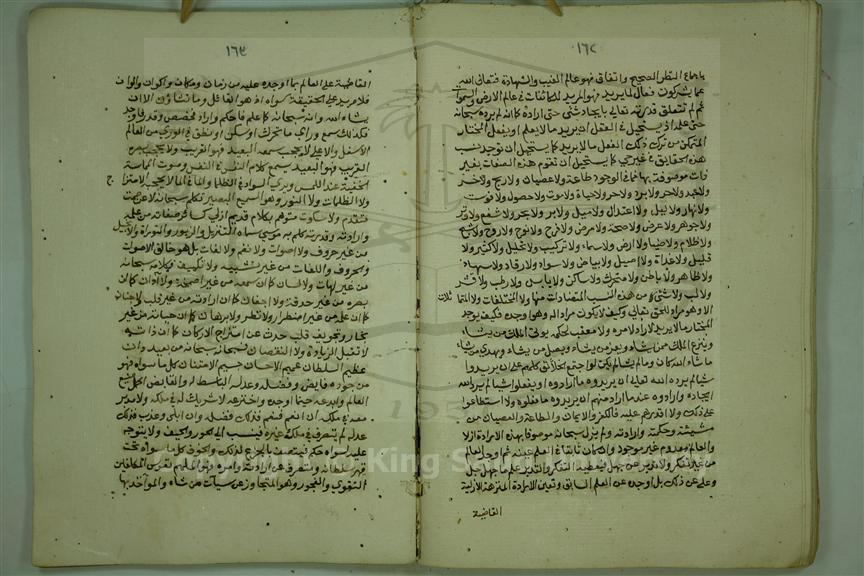 ١٦٢
باجماع النظر الصحيح واتفاق فهو عالم الغيب والشهادة فتعالى الله
عما يشركون فعال لما يريد فهو المريد للكائنات في عالم الارض والسموات
لم تتعلق قدرته تعالى بايجاد شئ حتى اراده كما انه لم يرده سبحانه
حتى علمه اذ يستحيل في العقل ان يريد ما لا يعلم او يفعل المختار
المتمكن من ترك ذلك الفعل ما لا يريد كما يستحيل ان توجد نسب
هذه الحقايق في غير حي كما يستحيل ان تقوم هذه الصفات بغير
ذات موصوفة بها فما في الوجود طاعة ولا عصيان ولا ربح ولا خسران
ولا عبد ولا حر ولا برد ولا حر ولا حياة ولا موت ولا حصول ولا فوت
ولا نهار ولا ليل ولا اعتدال ولا ميل ولا بر ولا بحر ولا شفع ولا وتر
ولا جوهر ولا عرض ولا صحة ولا مرض ولا فرح ولا ترح ولا روح ولا شبح
ولا ظلام ولا ضيا ولا ارض ولا سماء ولا تركيب ولا تحليل ولا كثير ولا
قليل ولا غداة ولا اصيل ولا بياض ولا سواد ولا رقاد ولا سهاد
ولا ظاهر ولا باطن ولا متحرك ولا ساكن ولا يابس ولا رطب ولا قشر
ولا لب ولا شئ من هذه النسب المتضادات منها والمختلفات والمتماثلات
الا وهو مراد للحق تعالى وكيف لا يكون مرادا له وهو اوجده فكيف يوجد
المختار ما لا يريد لا راد لامره ولا معقب لحكمه يوتي الملك من يشاء
وينزع الملك ممن يشاء ويعز من يشاء ويضل من يشاء ويهدي من يشاء
ما شاء الله كان وما لم يشا لم يكن لو اجتمع الخلائق كلهم على ان يريدوا
شيا لم يرده الله تعالى ان يريدوه ما ارادوه او يفعلوا شيا لم يرد الله
ايجاده وارادوه عندما ارادمنهم ان يريدوه ما فعلوه ولا استطاعوا
على ذلك ولا اقدرهم عليه فالكفر والايمان والطاعة والعصيان من
مشيئته وحكمته وارادته ولم يزل سبحانه موصوفا بهذه الارادة ازلا
والعالم معدوم غير موجود وان كان ثابتا في العلم عينه ثم اوجد العالم
من غير تفكر ولا تدبر عن جهل فيعطيه التفكر والتدبر علم ما جهل جل
وعلا عن ذلك بل اوجده عن العلم السابق وتعيين الارادة المنزهة الازلية
القاضية
١٦٣
القاضية على العالم بما اوجده عليه من زمان ومكان واكوان والوان
فلا مريد على الحقيقة سواه اذ هو القائل وما تشاؤن الا ان
يشاء الله وانه سبحانه كما علم فاحكم واراد فخصص وقدر فاوجد
فكذلك سمع وراي ما تحرك او سكن او نطق في الورى من العالم
الاسفل والاعلى لا يحجب سمعه البعد فهو القريب ولا يحجب بصره
القرب فهو البعيد يسمع كلام النفس في النفس وصوت المماسة
الخفية عند اللمس ويرى السواد في الظلما والماء في الما لا يحجبه الامتزاج
ولا الظلمات ولا النور وهو السميع البصير تكلم سبحانه لا عن صمت
متقدم ولا سكوت متوهم بكلام قديم ازلي كسائر صفاته من علمه
وارادته وقدرته كلم به موسى سماه التنزيل والزبور والتوراة والانجيل
من غير حروف ولا اصوات ولا نغم ولا لغات بل هو خالق الاصوات
والحروف واللغات من غير تشبيه ولا تكييف فكلامه سبحانه
من غير لهاة ولا لسان كما ان سمعه من غير اصمخة ولا آذان كما ان
بصره من غير حدقة ولا اجفان كما ان ارادته من غير قلب لا جنان
كما ان علمه من غير اضطرار ولا نظر ولا برهان كما ان حياته من غير
بخار وتجويف قلب حدث عن امتزاج الاركان كما ان ذاته
لا تقبل الزيادة ولا النقصان فسبحانه سبحانه من بعيد دان
عظيم السلطان عميم الاحسان جسيم الامتنان كل ما سواه فهو
من جوده فايض وفضله وعدله الباسط له والقابض اكمل صنع
العالم وابدعه حينما اوجده واخترعه لا شريك له في ملكه ولا مدبر
معه في ملكه ان انعم فنعم فذلك فضله وان ابلى وعذب فذلك
عدله لم يتصرف في ملك غيره فينسب الى الجور والحيف ولا يتوجه
عليه لسواه حكم فيتصف بالجزع لذلك والخوف كل ما سواه تحت
قهر سلطانه ومتصرف عن ارادته وامره فهو الملهم نفوس المكلفين
التقوى والفجور وهو المتجاوز عن سيئات من شاء والمواخذ بها